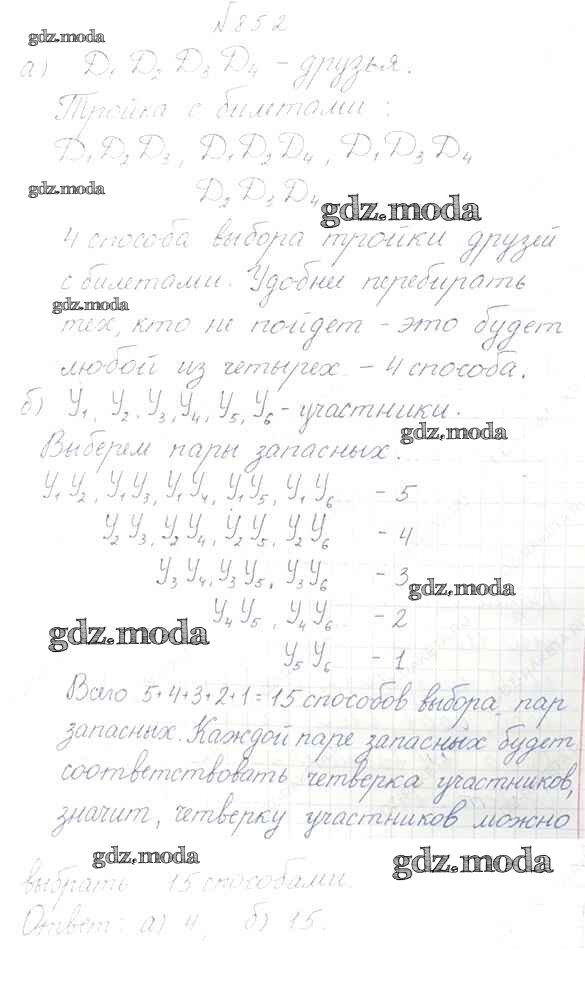 №852
gdz.moda
а) Д₁ Д₂ Д₃ Д₄ - друзья.
Тройка с билетами:
Д₁Д₂Д₃, Д₁Д₂Д₄, Д₁Д₃Д₄
gdz.moda
Д₂Д₃Д₄
gdz.moda
4 способа выбора тройки друзей
с билетами. Удобне перебирать
gdz.moda
тех, кто не пойдет - это будет
любой из четырех - 4 способа.
б) У₁, У₂, У₃, У₄, У₅, У₆ - участники.
gdz.moda
Выберем пары запасных.
У₁У₂, У₁У₃, У₁У₄, У₁У₅, У₁У₆ - 5
У₂У₃, У₂У₄, У₂У₅, У₂У₆ - 4
У₃У₄, У₃У₅, У₃У₆ - 3
gdz.moda
У₄У₅, У₄У₆ - 2
gdz.moda
У₅У₆ - 1
Всего 5+4+3+2+1=15 способов выбора пар
запасных. Каждой паре запасных будет
соответствовать четверка участников,
значит, четверку участников можно
gdz.moda
gdz.moda
выбрать 15 способами.
Ответ: а) 4, б) 15.